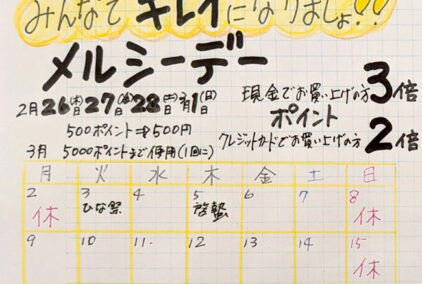 みんなで キレイ になりましょ!!
メルシーデー
2月26(木)27(金)28(土)3月1(日)
500ポイント⇒500円
3月 5000ポイントまで使用(1回に)
現金でお買い上げの方 3倍
ポイント
クレジットカードでお買い上げの方 2倍
月 火 水 木 金 土 日
2 3 4 5 6 7 8
休 ひな祭 啓蟄 休
9 10 11 12 13 14 15
休